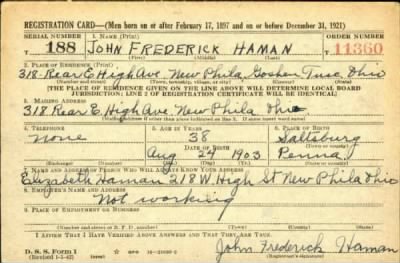 REGISTRATION CARD—(Men born on or after February 17, 1897 and on or before December 31, 1921)
SERIAL NUMBER 1. NAME (Print) ORDER NUMBER
T 188 JOHN FREDERICK HAMAN T 11360
(First) (Middle) (Last)
2. PLACE OF RESIDENCE (Print)
318 Rear E High Ave. New Phila, Goshen Tusc. Ohio
(Number and street) (Town, township, village, or city) (County) (State)
[THE PLACE OF RESIDENCE GIVEN ON THE LINE ABOVE WILL DETERMINE LOCAL BOARD
JURISDICTION; LINE 2 OF REGISTRATION CERTIFICATE WILL BE IDENTICAL]
3. MAILING ADDRESS
318 Rear E. High Ave New Phila Ohio
[Mailing address if other than place indicated on line 2. If same insert word same]
4. TELEPHONE 5. AGE IN YEARS 6. PLACE OF BIRTH
None 38 Saltsburg
DATE OF BIRTH (Town or county)
Aug 24 1903 Penna
(Exchange) (Number) (Mo.) (Day) (Yr.) (State or country)
7. NAME AND ADDRESS OF PERSON WHO WILL ALWAYS KNOW YOUR ADDRESS
Elizabeth Haman 218 W. High St New Phila Ohio
8. EMPLOYER'S NAME AND ADDRESS
Not working
9. PLACE OF EMPLOYMENT OR BUSINESS
(Number and street or R. F. D. number) (Town) (County) (State)
I AFFIRM THAT I HAVE VERIFIED ABOVE ANSWERS AND THAT THEY ARE TRUE.
D. S. S. Form 1
(Revised 1-1-42) (over) John Frederick Haman